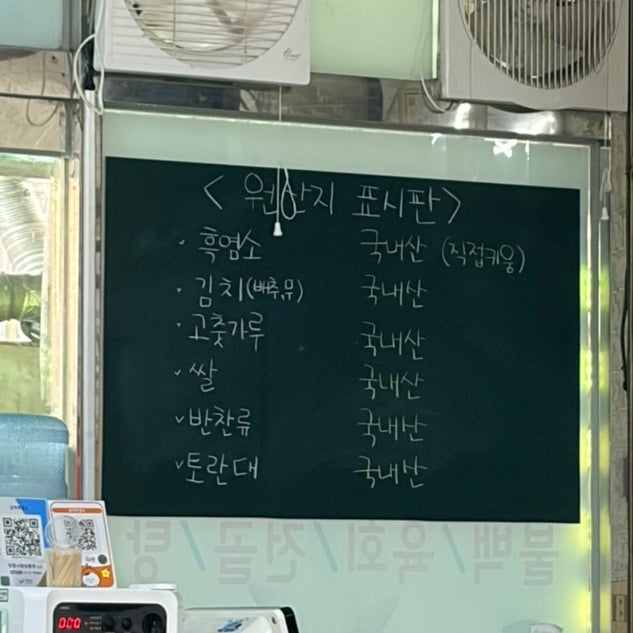 < 원산지 표시판>
흑염소 국내산 (직접키움)
김치(배추,무) 국내산
고춧가루 국내산
쌀 국내산
반찬류 국내산
토란대 국내산
불백/육회/전골/탕
000